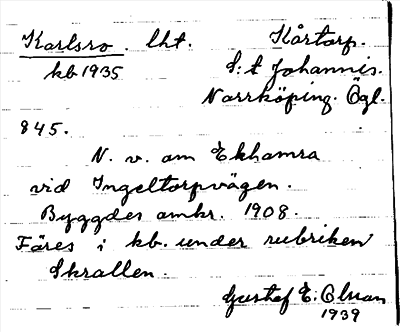 Karlsro. lht. Kårtorp.
kb 1935 S:t Johannis.
Norrköping. Ögl.
845.
N. v. om Ekhamra
vid Ingeltorpvägen.
Byggdes omkr. 1908.
Föres i kb. under rubriken
Skrallen.
Gustaf E: Olson
1939